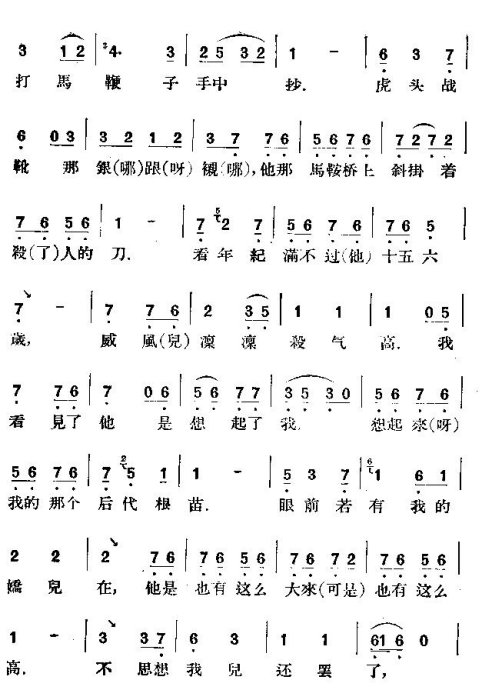 3 1 2 4· 3 2 5 3 2 1 - 6 3 7
打馬鞭子手中抄. 虎头战
6 0 3 3 2 1 2 3 7 7 6 5 6 7 6 7 2 7 2
靴那銀(哪)跟(呀)襯(哪),他那馬鞍桥上斜掛着
7 6 5 6 1 - 7 5 2 7 5 6 7 6 7 6 5
殺(了)人的刀. 看年紀滿不过(他)十五六
7 7 7 6 2 3 5 1 1 1 0 5
歲,威風(兒)凜凜殺气高.我
7 7 6 7 0 6 5 6 7 7 3 5 3 0 5 6 7 6
看見了他是想起了我. 想起來(呀)
5 6 7 6 2 7 5 1 1 - 5 3 7 6 1 6 1
我的那个后代根苗. 眼前若有我的
2 2 2 7 6 5 6 7 6 7 6 7 2 7 6 5 6
嬌兒在,他是也有这么大來(可是)也有这么
1 - 3 3 7 6 3 1 1 6 1 6 0
高. 不思想我兒还罢了,